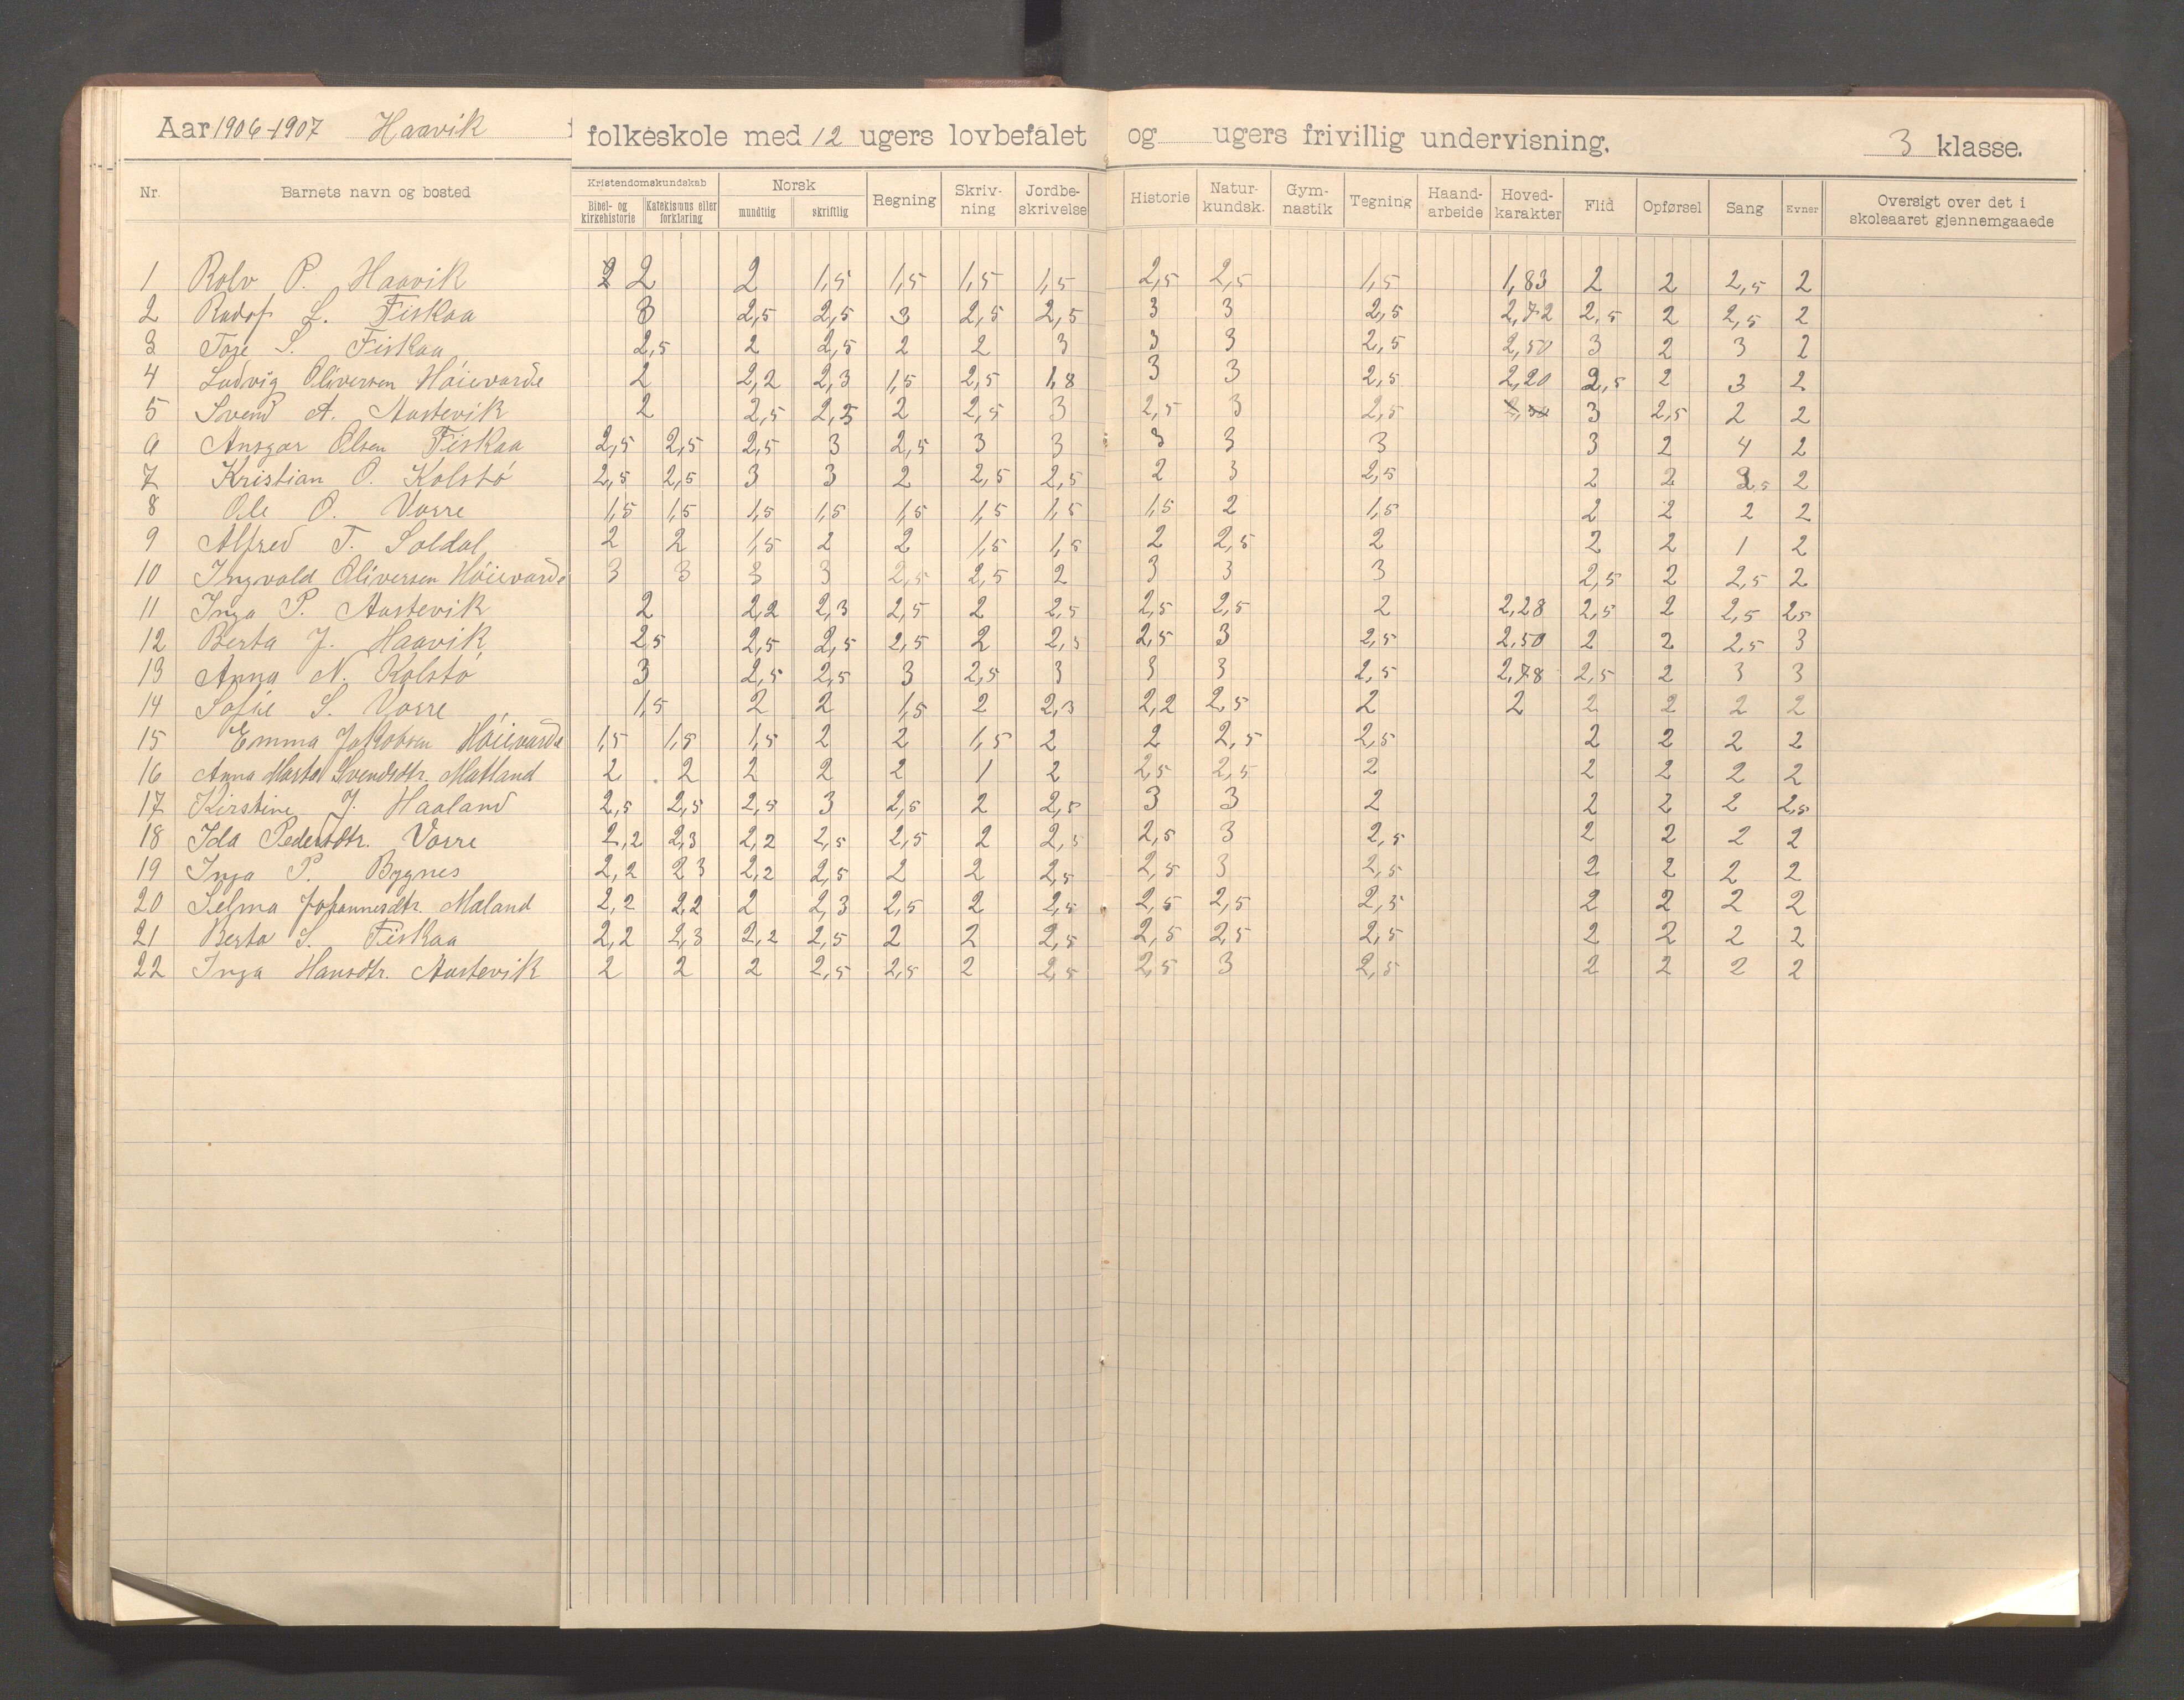 Aar 1906-1907 Haavik folkeskole med 12 ugers lovbefalet og ugers frivillig undervisning. 3 klasse.
Nr. Barnets navn og bosted Kristendomskundskab Bibel- og kirkehistorie Katekismus eller forklaring Norsk mundtlig skriftlig Regning Skriv-ning Jordbe-skrivelse Historie Natur-kundsk. Gym-nastik Tegning Haand-arbeide Hoved-karakter Flid Opførsel Sang Evner Oversigt over det i skoleaaret gjennemgaaede
1 Rolv P. Haavik 2 2 1,5 1,5 1,5 1,5 2,5 2,5 1,5 1,83 2 2 2,5 2
2 L. Fiskaa 3 2,5 2,5 3 2,5 2,5 3 3 2,5 2,72 2,5 2 2,5 2
3 S. Fiskaa 2,5 2 2,5 2 2 3 3 3 2,5 2,50 3 2 3 2
4 Ludvig Oliversen Høievarde 2 2,2 2,3 1,5 2,5 1,8 3 3 2,5 2,20 2,5 2 3 2
5 Svend A. Austevik 2 2,5 2,5 2 2,5 3 2,5 3 2,5 3 2,5 2 2
6 Ansgar Olsen Fiskaa 2,5 2,5 2,5 3 2,5 3 3 3 3 3 3 2 4 2
7 Kristian O. Kolstø 2,5 2,5 3 3 2 2,5 2,5 2 3 2,5 2 2 2
8 Ole O. Vorre 1,5 1,5 1,5 1,5 1,5 1,5 1,5 1,5 2 1,5 2 2 2 2
9 Alfred T. Soldal 2 2 1,5 2 2 1,5 1,5 2 2,5 2 2 2 1 2
10 Ingvald Oliversen Høievarde 3 3 3 3 2,5 2,5 2 3 3 3 2,5 2 2,5 2
11 Inga P. Austevik 2 2,2 2,3 2,5 2 2,5 2,5 2,5 2 2,28 2,5 2 2,5 2,5
12 Berta J. Haavik 2,5 2,5 2,5 2,5 2 2,5 2,5 3 2,5 2,50 2 2 2,5 3
13 Anna N. Kolstø 3 2,5 2,5 3 2,5 3 3 3 2,5 2,78 2,5 2 3 3
14 Sofie S. Vorre 1,5 2 2 1,5 2 2,3 2,2 2,5 2 2 2 2 2 2
15 Emma Jakobsen Høievarde 1,5 1,5 1,5 2 2 1,5 2 2 2,5 2,5 2 2 2 2
16 Anna Marta Svendsdtr. Matland 2 2 2 2 2 1 2 2,5 2,5 2 2 2 2 2
17 Kirstine J. Haaland 2,5 2,5 2,5 3 2,5 2 2,5 3 3 2 2 2 2 2,5
18 Ida Pedersdtr. Vorre 2,2 2,3 2,2 2,5 2,5 2 2,5 2,5 3 2,5 2 2 2 2
19 Inga P. Bygnes 2,2 2 3 2,2 2,5 2 2 2,5 2,5 3 2,5 2 2 2 2
20 Selma Johannesdtr. Maland 2,2 2,2 2 2,3 2,5 2 2,5 2,5 2,5 2,5 2 2 2 2
21 Berta S. Fiskaa 2,2 2,3 2,2 2,5 2 2 2,5 2,5 2,5 2,5 2 2 2 2
22 Inga Hansdtr. Austevik 2 2 2 2,5 2,5 2 2,5 2,5 3 2,5 2 2 2 2